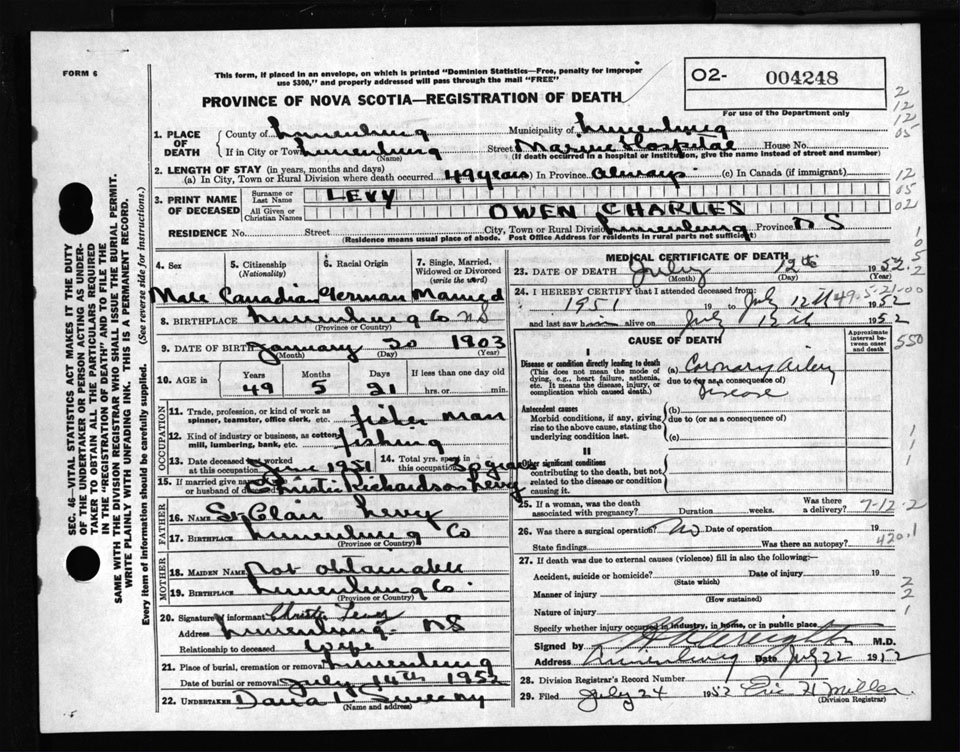 FORM 6
This form, if placed in an envelope, on which is printed "Dominion Statistics—Free, penalty for improper
use $300," and properly addressed will pass through the mail "FREE"
O2- 004248
For use of the Department only
PROVINCE OF NOVA SCOTIA—REGISTRATION OF DEATH
2
12
12
05
1. PLACE OF DEATH
County of Lunenburg Municipality of Lunenburg
If in City or Town Lunenburg Street Marine Hospital House No.
(Name) (If death occurred in a hospital or institution, give the name instead of street and number)
2. LENGTH OF STAY (in years, months and days)
(a) In City, Town or Rural Division where death occurred 49 years In Province always (c) In Canada (if immigrant)
12
05
02
3. PRINT NAME OF DECEASED
Surname or Last Name LEVY
All Given or Christian Names OWEN CHARLES
RESIDENCE No. Street City, Town or Rural Division Lunenburg Province NS
(Residence means usual place of abode. Post Office Address for residents in rural parts not sufficient)
SEC. 46—VITAL STATISTICS ACT MAKES IT THE DUTY
OF THE UNDERTAKER OR PERSON ACTING AS UNDER-
TAKER TO OBTAIN ALL THE PARTICULARS REQUIRED
IN THE "REGISTRATION OF DEATH" AND TO FILE THE
SAME WITH THE DIVISION REGISTRAR WHO SHALL ISSUE THE BURIAL PERMIT.
WRITE PLAINLY WITH UNFADING INK. THIS IS A PERMANENT RECORD.
Every item of information should be carefully supplied. (See reverse side for instructions.)
4. Sex
5. Citizenship (Nationality)
6. Racial Origin
7. Single, Married, Widowed or Divorced (write the word)
Male Canadian German Married
8. BIRTHPLACE Lunenburg Co NS
(Province or Country)
9. DATE OF BIRTH January 20 1903
(Month) (Day) (Year)
10. AGE in Years Months Days If less than one day
49 5 21 hrs. or min.
OCCUPATION
11. Trade, profession, or kind of work as spinner, teamster, office clerk, etc. fisher man
12. Kind of industry or business, as cotton mill, lumbering, bank, etc. fishing
13. Date deceased last worked at this occupation June 1951
14. Total yrs. spent in this occupation 30 years
15. If married give name of wife or husband of deceased Christie Richardson Levy
FATHER
16. NAME St Clair Levy
17. BIRTHPLACE Lunenburg Co
(Province or Country)
MOTHER
18. MAIDEN NAME Not obtainable
19. BIRTHPLACE Lunenburg Co.
(Province or Country)
20. Signature of informant Christie Levy
Address Lunenburg NS
Relationship to deceased wife
21. Place of burial, cremation or removal Lunenburg
Date of burial or removal July 14th 1952
22. UNDERTAKER Sweeny
(Name and address)
MEDICAL CERTIFICATE OF DEATH
23. DATE OF DEATH July 12th 1952
(Month) (Day)
24. I HEREBY CERTIFY that I attended deceased from:
1951 19 to July 12th 1952
49-5-21-00
and last saw h alive on July 12th 1952
CAUSE OF DEATH
Approximate interval between onset and death
550
I
Disease or condition directly leading to death
(This does not mean the mode of dying, e.g., heart failure, asthenia, etc. It means the disease, injury, or complication which caused death.)
(a) Coronary Artery
due to (or as a consequence of)
Disease
Antecedent causes
Morbid conditions, if any, giving rise to the above cause, stating the underlying condition last.
(b)
due to (or as a consequence of)
(c)
II
Other significant conditions
contributing to the death, but not related to the disease or condition causing it.
25. If a woman, was the death associated with pregnancy? Duration weeks. Was there a delivery?
7-12-2
26. Was there a surgical operation? No Date of operation 19
State findings Was there an autopsy?
420.1
27. If death was due to external causes (violence) fill in also the following:
Accident, suicide or homicide? Date of injury 19
(State which)
Manner of injury
(How sustained)
Nature of injury
Specify whether injury occurred in industry, in home, or in public place
Signed by M.D.
Address Lunenburg Date July 22 1952
28. Division Registrar's Record Number
29. Filed July 24 1952 Eric H Miller
(Division Registrar)